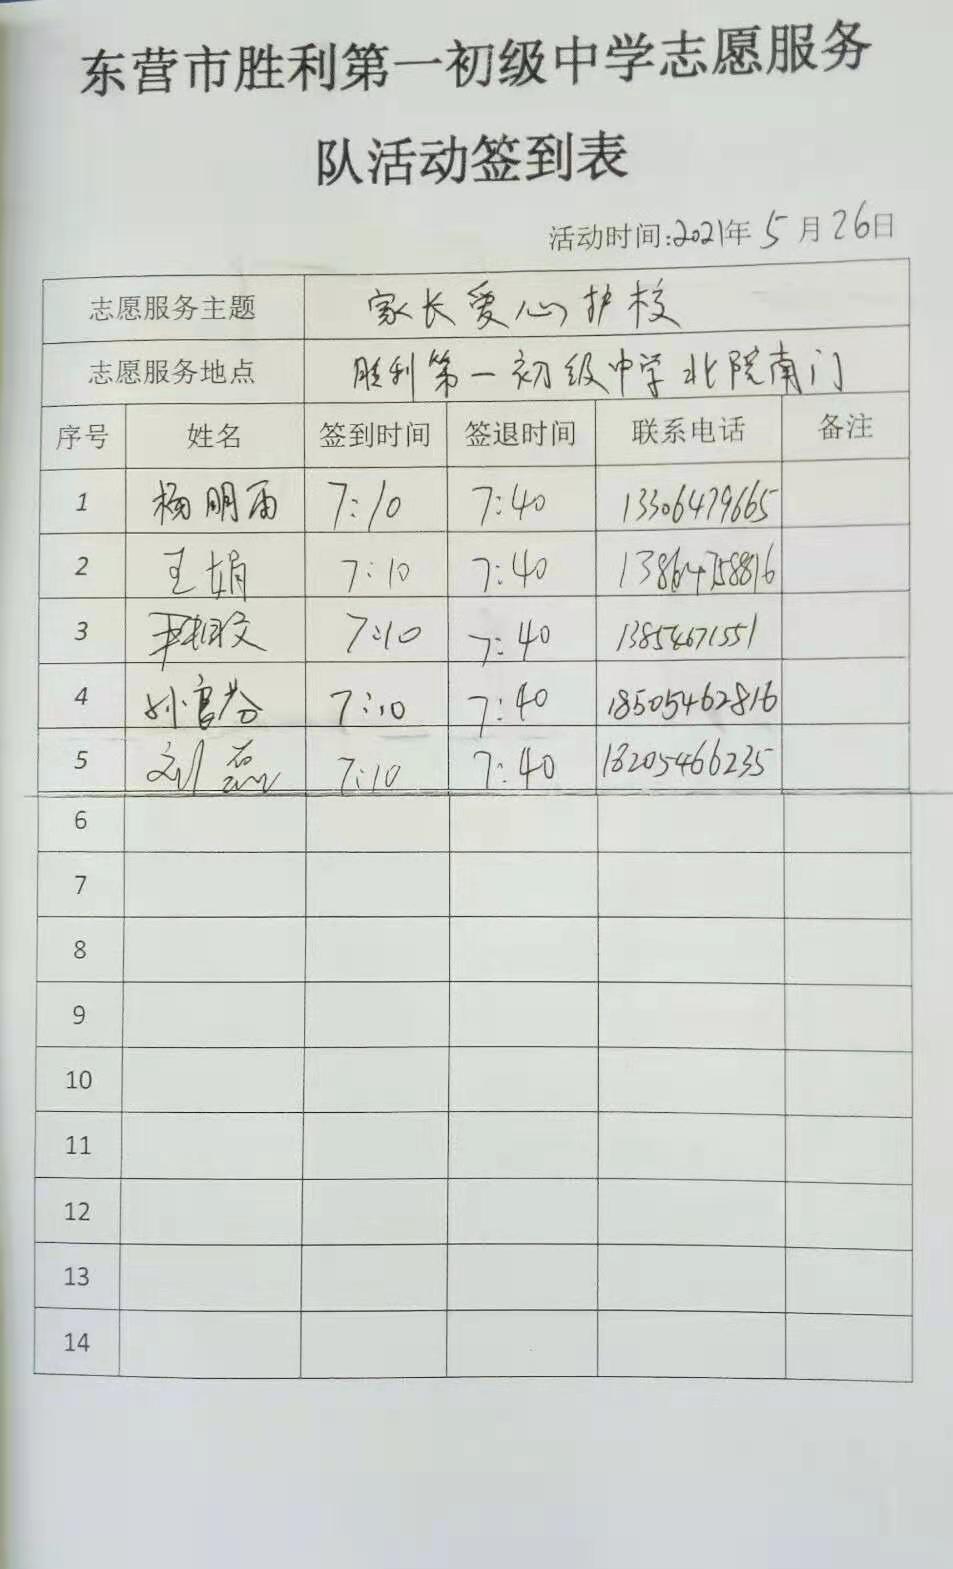 东营市胜利第一初级中学志愿服务
队活动签到表
活动时间:2021年5月26日
志愿服务主题 家长爱心护校
志愿服务地点 胜利第一初级中学北院南门
序号 姓名 签到时间 签退时间 联系电话 备注
1 杨明雨 7:10 7:40 13306479665
2 王娟 7:10 7:40 13864758816
3 7:10 7:40 13854671551
4 孙富芬 7:10 7:40 18505462816
5 刘磊 7:10 7:40 18205466235
6
7
8
9
10
11
12
13
14